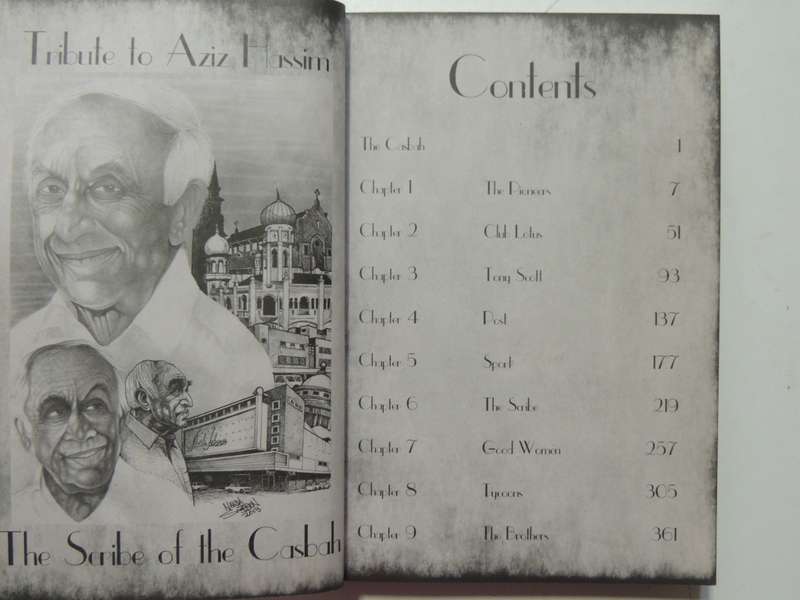 Tribute to Aziz Hassim
The Scribe of the Casbah
Contents
The Casbah 1
Chapter 1 The Pioneers 7
Chapter 2 Club Lotus 51
Chapter 3 Tony Scott 93
Chapter 4 Post 137
Chapter 5 Sport 177
Chapter 6 The Scribe 219
Chapter 7 Good Women 257
Chapter 8 Tycoons 305
Chapter 9 The Brothers 361